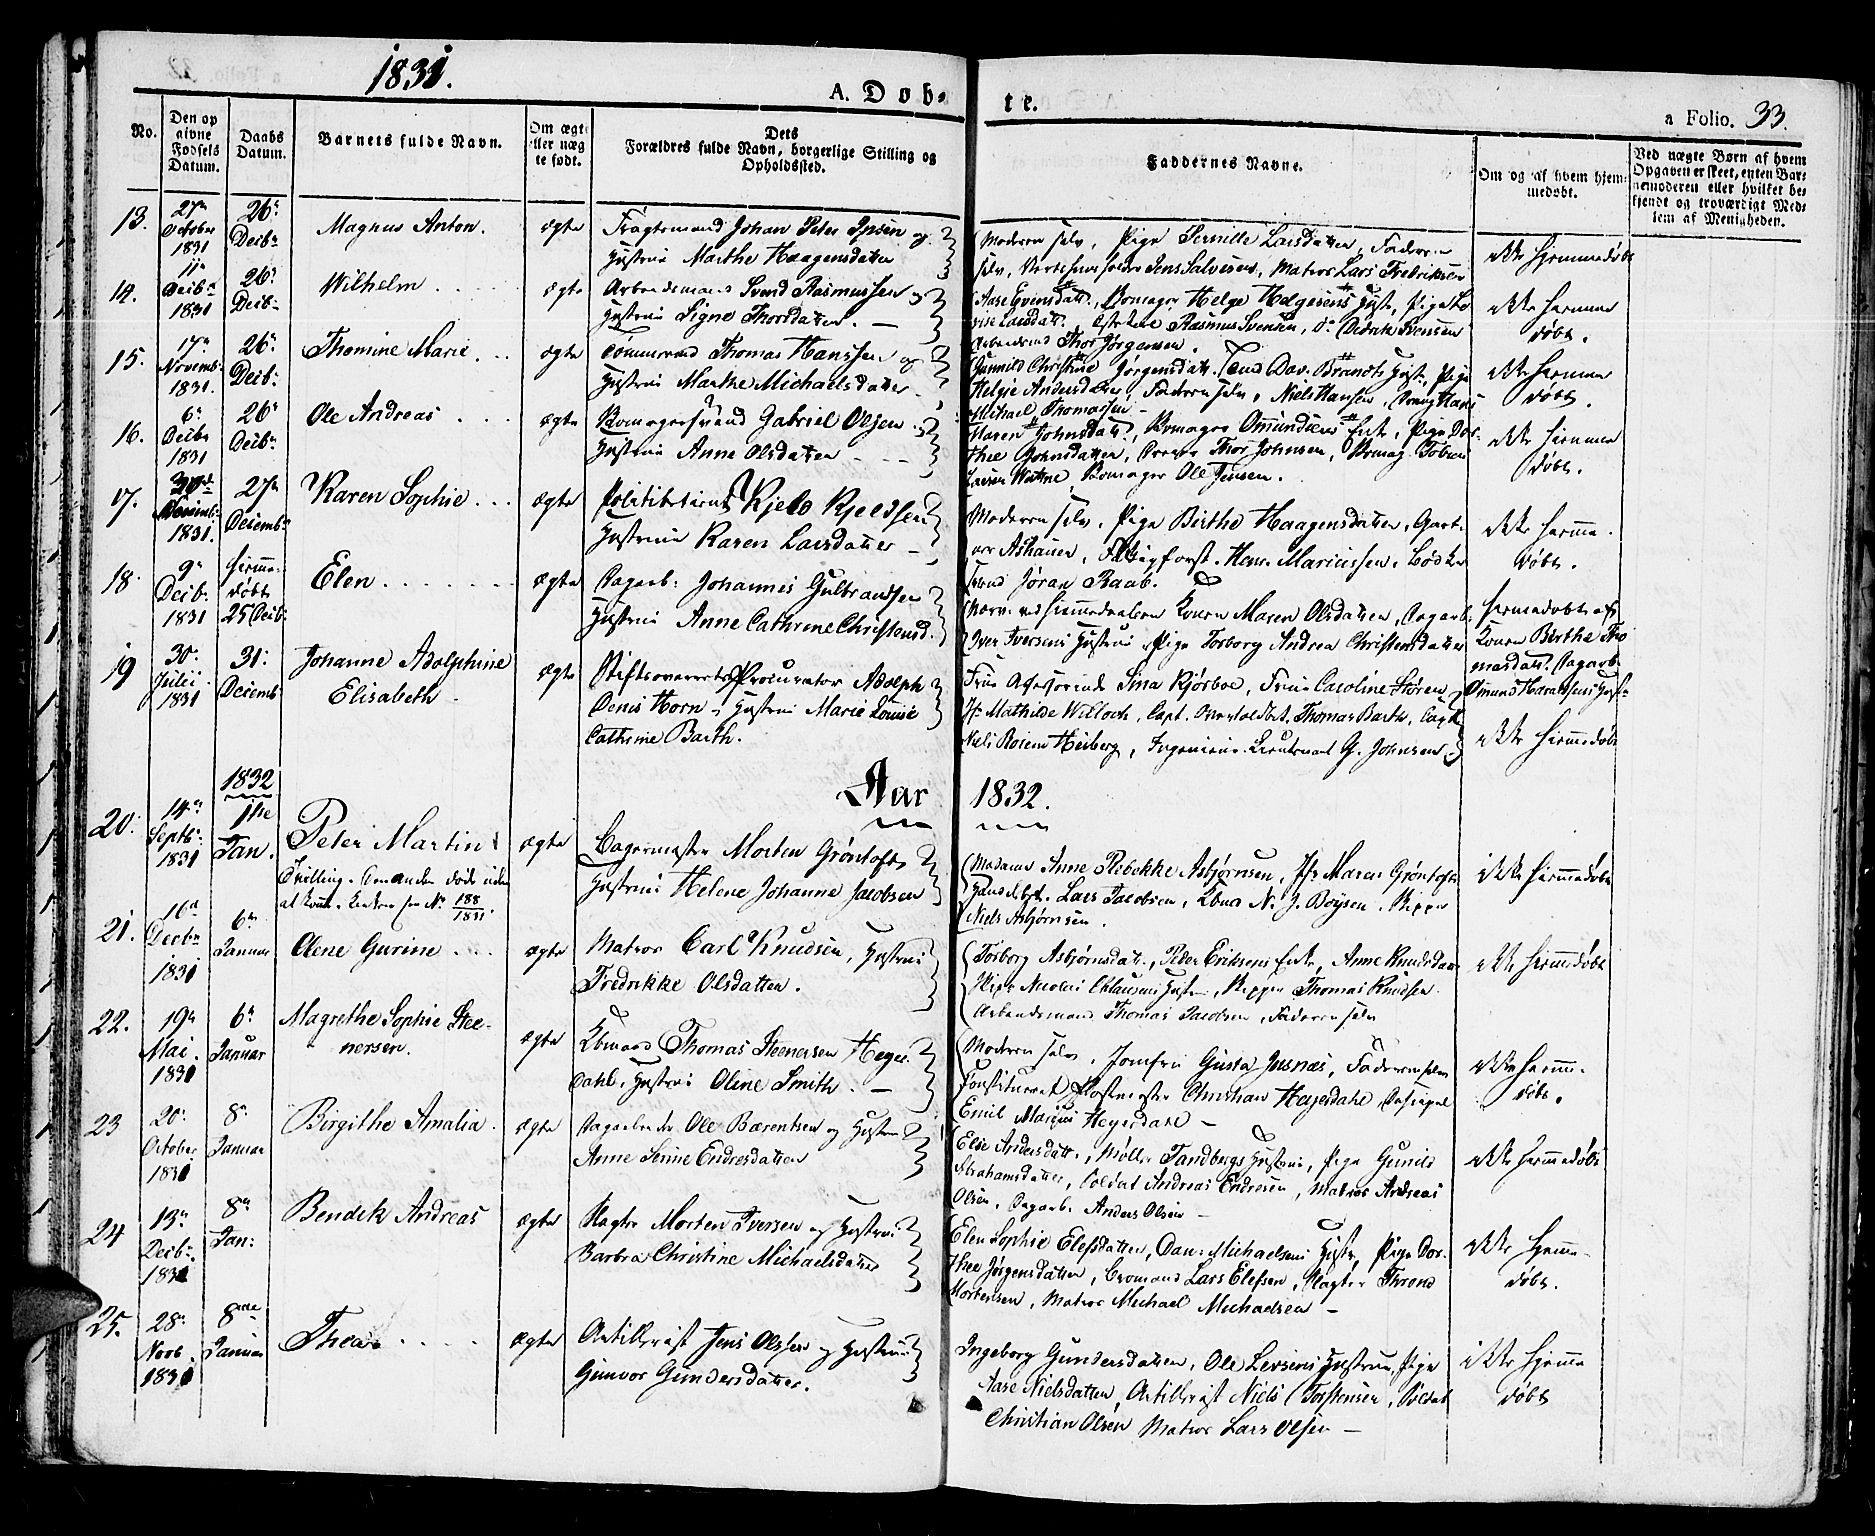 1831.
A. Døb-
te.
a Folio. 33.
No.
Den op
givne
Fødsels
Datum.
Daabs
Datum.
Barnets fulde Navn.
Om ægte
eller uæg
te født.
Dets
Forældres fulde Navn, borgerlige Stilling og
Opholdssted.
Faddernes Navne.
Om og af hvem hjem-
medøbt.
Ved uægte Børn af hvem
Opgaven er skeet, enten Bar-
nemoderen eller hvilket be-
kjendt og troværdigt Med-
lem af Menigheden.
13.
27de
October
1831
26de
Decbr
Magnus Anton.
ægte
Fragtemand Johan Peter Ipsen og
Hustrue Marthe Haagensdatter
Moderen selv, Pige Pernille Larsdatter, Faderen
selv, Jens Salvesen, Matros Lars Fredriksen
ikke hjemmedøbt
14.
11te
Decbr
1831
26de
Decbr
Wilhelm
ægte
Arbeidsmand Svend Rasmussen og
Hustrue Signe Thorsdatter.
Aase Evensdatt., Bomager Helge Helgesens Hust., Pige Lo-
vise Larsdatt. Rasmus Svensen, do Didrik Svensen
Arbeidsmd Thor Jørgensen.
ikke hjemme
døbt.
15.
17de
Novemb.
1831.
26de
Decbr
Thomine Marie
ægte
Tømmermd Thomas Hanssen og
Hustrue Marthe Michaelsdatter
Gunnild Christine Jørgensdatt. Dav. Brandts Hust., Pige
Helgie Andersdatter, Faderen selv, Niels Hansen, Dreng Hans
Michael Thomassen
ikke hjemme
døbt.
16.
6te
Decbr
1831
26de
Decbr
Ole Andreas
ægte
Bomagersvend Gabriel Olsen og
Hustrue Anne Olsdatter
Maren Johnsdatt., Bomager Omundsens Enke, Pige Dor-
thee Johnsdatter, Thor Johnsen, Bomag. Tobias
Larsen Wattne, Bomager Ole Jensen.
ikke hjemme
døbt.
17.
1831.
27de
Decembr
Karen Sophie
ægte
Politibetient Kjeld Kjeldsen
Hustrue Karen Larsdatter
Moderen selv, Pige Birthe Haagensdatter, Gart-
ner Ashauer, Fattigforst. Henr. Mariussen, Bødker
svend Jøran Raab.
ikke hjemme-
døbt.
18.
9de
Decbr
1831
hjemme-
døbt
25 Decbr
Elen
ægte
Dagarb. Johannes Gulbrandsen
Hustrue Anne Cathrine Christensd.
ved Hjemmedaaben Konen Maren Olsdatter, Dagarb.
Iver Iversens Hustrue, Pige Torborg Andrea Christensdatter
hjemmedøbt af
Konen Berthe Tho-
masdatt. Dagarb.
Omund Haraldsens Hust.
19
30de
Julii
1831
31te
Decemb.
Johanne Adolphine
Elisabeth
ægte
Stiftsoverrets Procurator Adolph
Denis Horn, Hustrue Marie Louise
Cathrine Barth.
Frue Assessorinde Sina Kjørboe, Frue Caroline Steren
Jfr Mathilde Willoch, Capt. Thomas Barth, Capt.
Niels Rosing Heiberg, Ingenieur-Lieutenant G. Johnsen
ikke hjemmedøbt
Aar 1832.
20.
14de
Septbr
1831
1832
1ste
Jan.
Peter Martin
Tvilling. Den anden døde uden
at No 188
1831.
ægte
Lagermester Morten Grøntoft
Hustrue Helene Johanne Jacobsen
Madame Anne Rebekke Asbjørnsen, Jfr Maren Grøntoft
Lars Jacobsen, Kbmd N. J. Boysen, Skipper
Niels Asbjørnsen.
ikke hjemmedøbt
21.
16de
Decbr
1831
6te
Januar
Olene Gurine
ægte
Matros Carl Knudsen, Hustrue
Fredrikke Olsdatter.
Torborg Asbjørnsdat., Peder Eriksens Enke, Anne Knudsdatter
Skipr Nicolai Clausens Hustr., Skipper Thomas Knudsen
Arbeidsmand Thomas Jacobsen, Faderen selv
ikke hjemmedøbt
22.
19de
Mai
1831
6te
Januar
Magrethe Sophie Stee-
nersen.
ægte
Kbmand Thomas Steenersen Heyer-
dahl, Hustrue Oline Smith.
Moderen selv, Jomfru Gusta Jusnæs, Faderen selv
Constitueret Postmester Christian Heyerdahl,
Emil Marius Heyerdahl
ikke hjemme-
døbt.
23
20de
October
1831
8de
Januar
Birgithe Amalia.
ægte
Dagarbeider Ole Bærentsen og Hustrue
Anne Serine Endresdatter
Else Andersdatter, Møller Tandbergs Hustrue, Pige Gunild
Abrahamsdatter, Soldat Andreas Endresen, Matros Andreas
Olsen, Dagarb. Anders Olsen
ikke hjemmedøbt
24
13de
Decbr
1831
8de
Jan:
Bendik Andreas
ægte
Slagter Morten Iversen og Hustrue
Barbra Christine Michaelsdatter
Elen Sophie Elefsdatter, Dan. Michaelsens Hustr, Pige Dor-
thee Jørgensdatter, Lars Elefsen, Slagter Thrond
Mortensen, Matros Michael Michaelsen
ikke hjemme-
døbt.
25.
28de
Novb
1831
8de
Januar
Thea
ægte
Artillerist Jens Olsen og Hustrue
Gunvor Gundersdatter.
Ingeborg Gundersdatter, Ole Larsens Hustrue, Pige
Aase Nielsdatter, Artillerist Niels Torstensen, Soldat
Christian Olsen Matros Lars Olsen
ikke hjemme
døbt